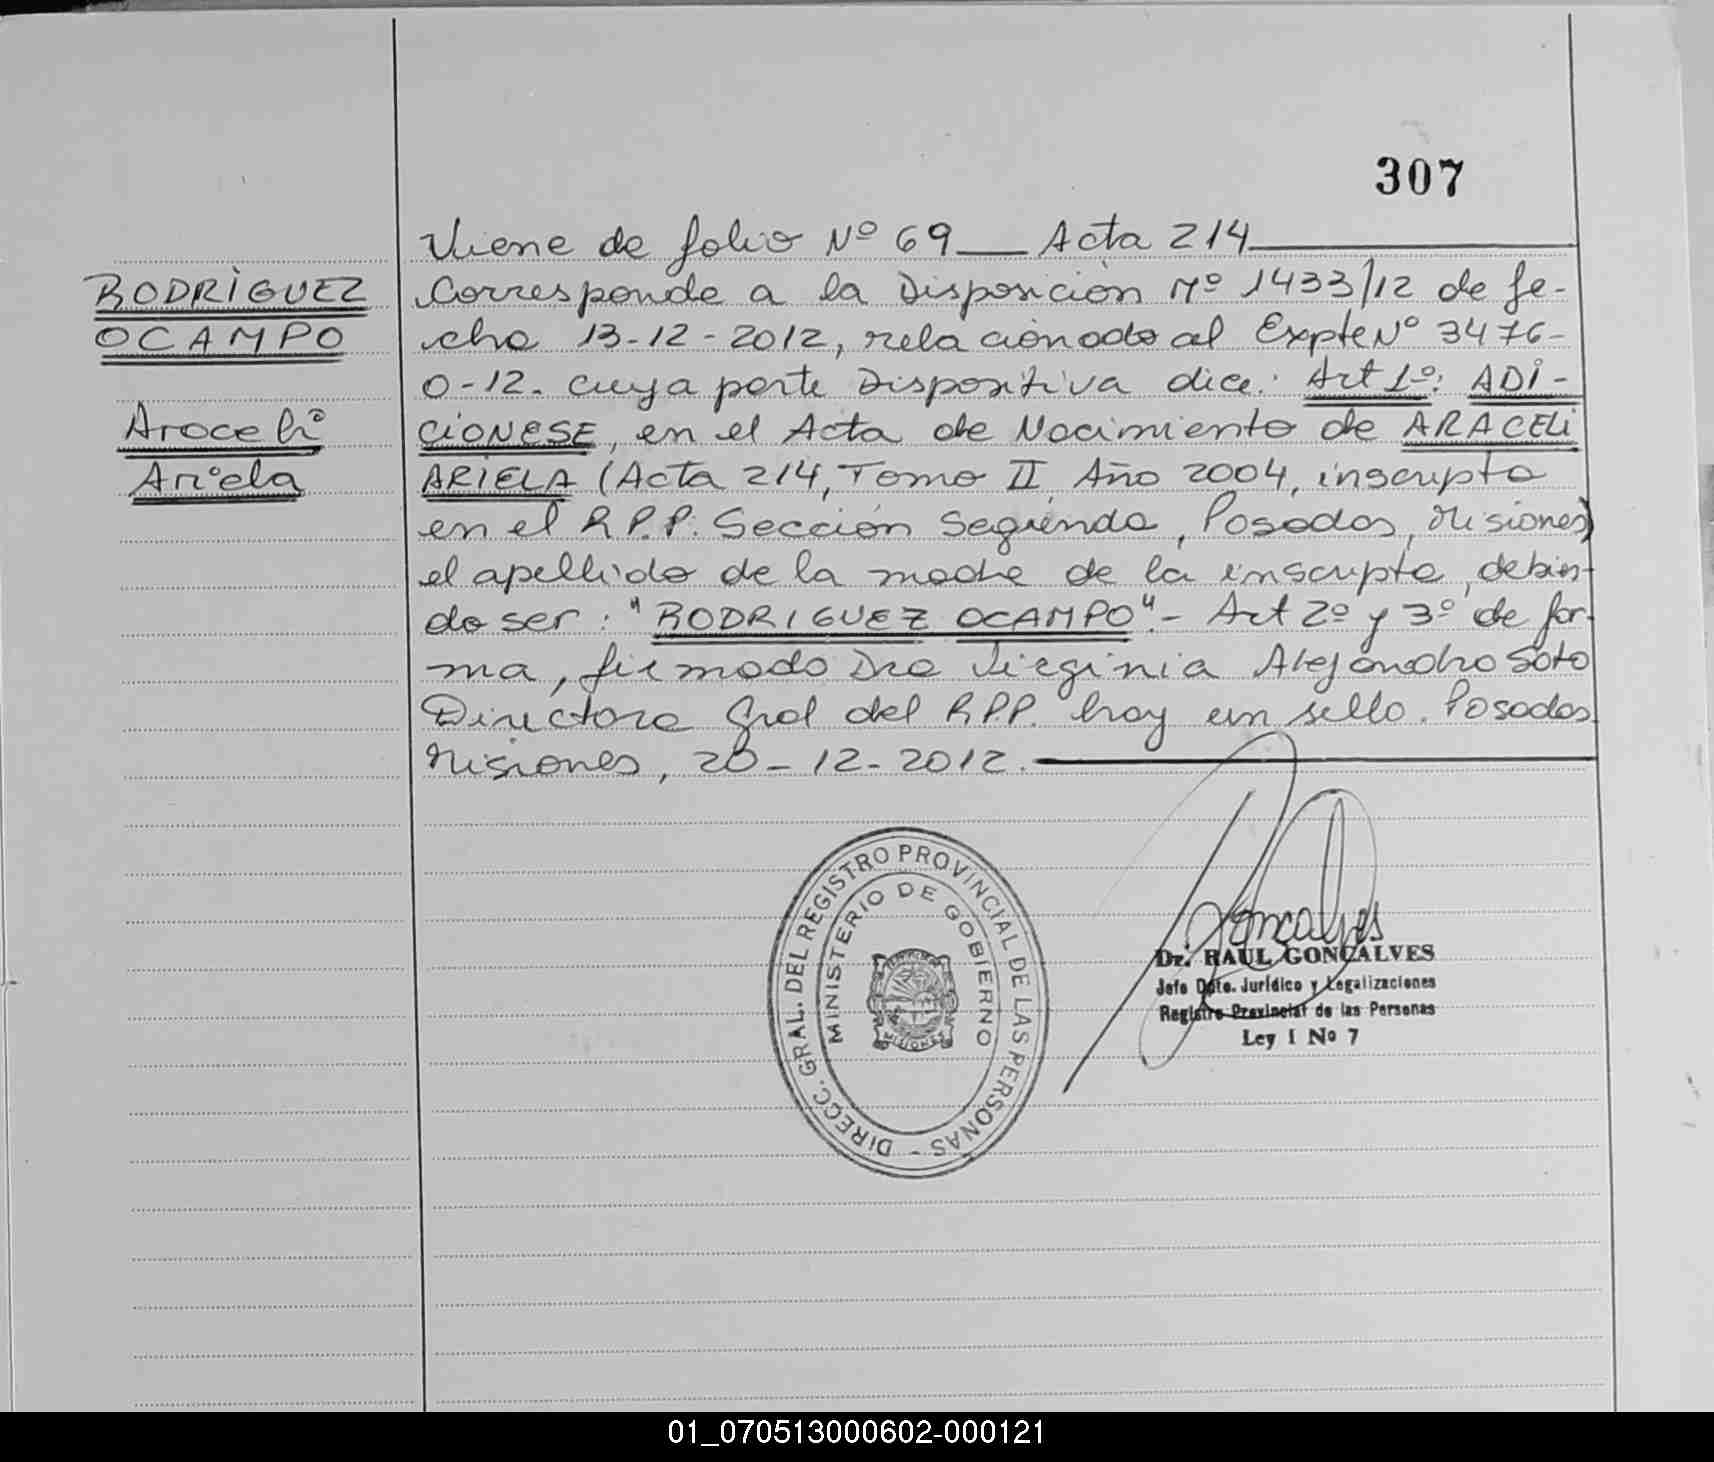 307
Viene de folio Nº 69 — Acta 214
RODRÍGUEZ
OCAMPO
Araceli
Ariela
Corresponde a la Disposición Nº 1433/12 de fe-
cha 13-12-2012, relacionado al Expte Nº 3476-
0-12. cuya parte Dispositiva dice: Art 1º: ADI-
CIONESE, en el Acta de Nacimiento de ARACELI
ARIELA (Acta 214, Tomo II, Año 2004, inscripta
en el R.P.P. Sección Segunda, Posadas, Misiones)
el apellido de la madre de la inscripta, debien-
do ser: "RODRIGUEZ OCAMPO".- Art 2º y 3º de for-
ma, firmado Dra Virginia Alejandra Soto
Directora Gral del R.P.P. hay un sello. Posadas
Misiones, 20-12-2012.
DIRECC. GRAL. DEL REGISTRO PROVINCIAL DE LAS PERSONAS -
MINISTERIO DE GOBIERNO
MISIONES
Goncalves
Dr. RAUL GONCALVES
Jefe Dpto. Jurídico y Legalizaciones
Registro Provincial de las Personas
Ley I Nº 7
01_070513000602-000121